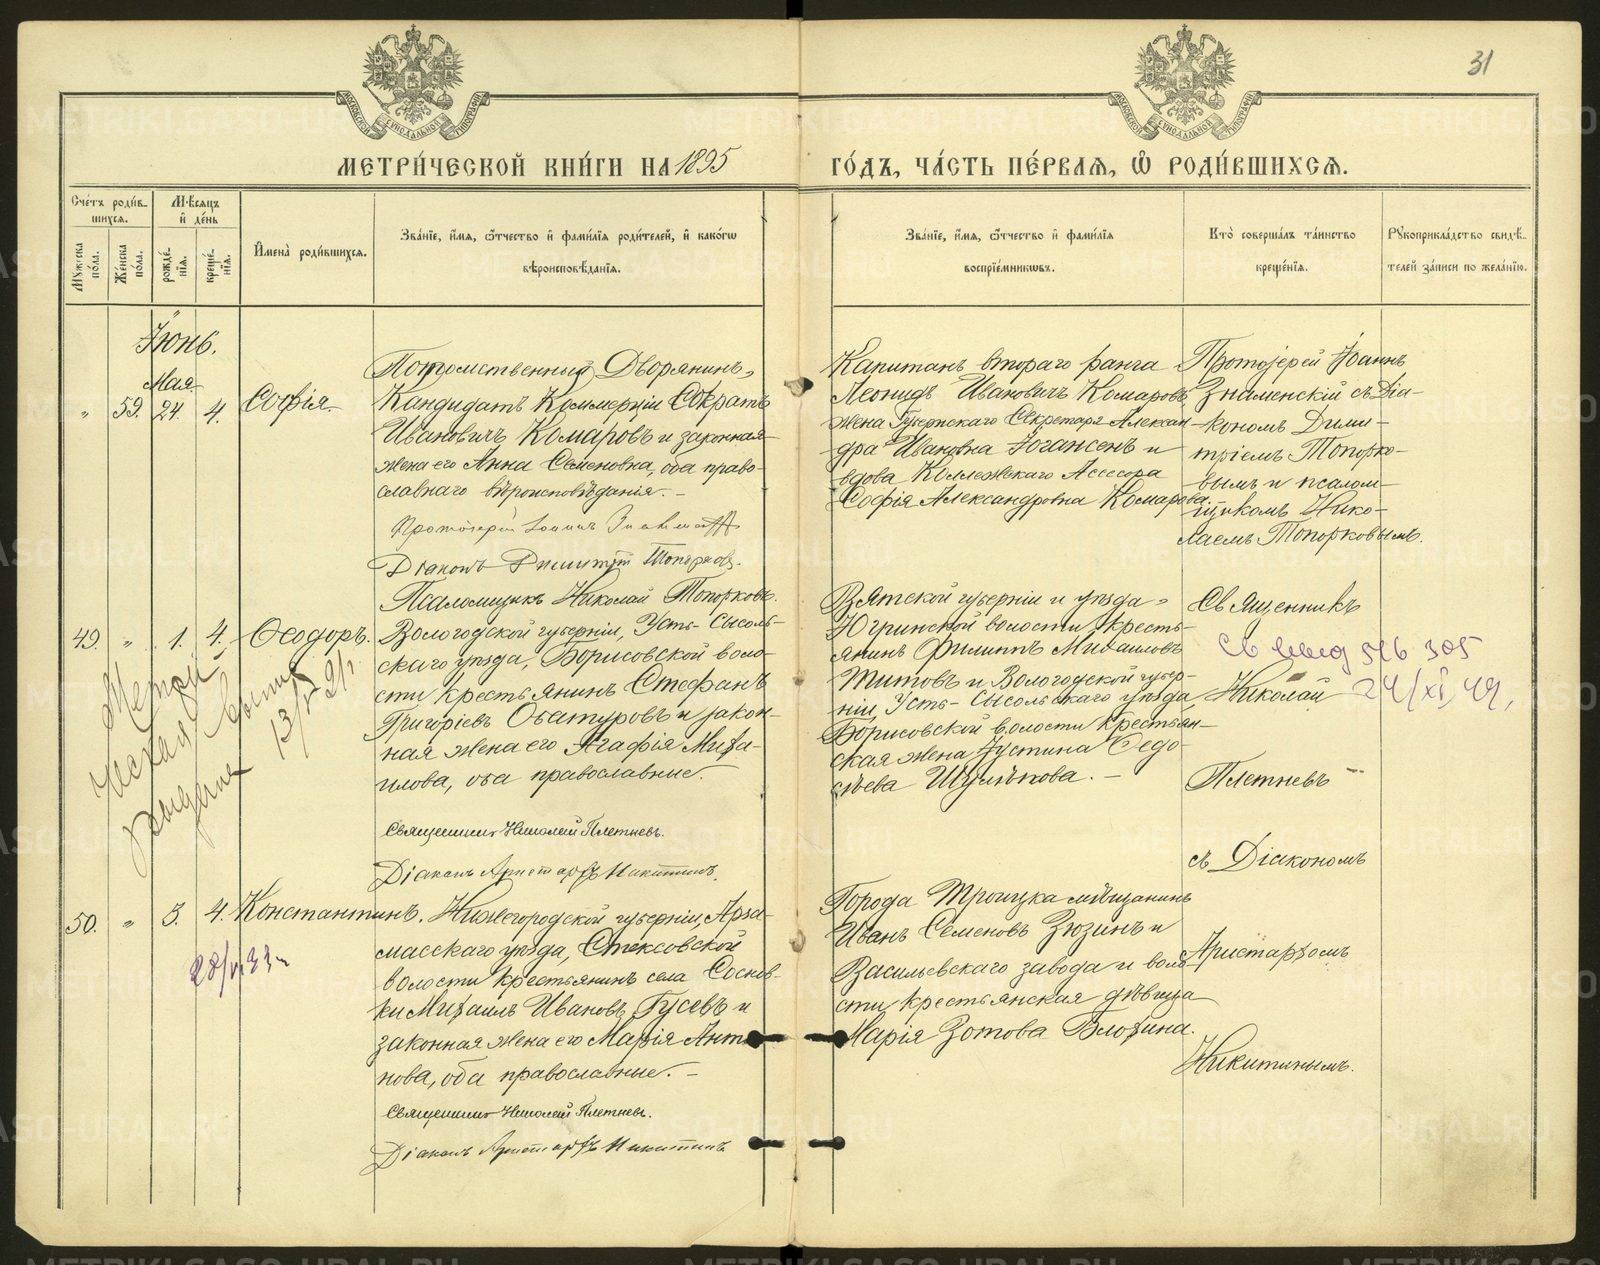 31
МОСКОВСКОЙ СѴНОДАЛЬНОЙ ТИПОГРАФІИ
МОСКОВСКОЙ СѴНОДАЛЬНОЙ ТИПОГРАФІИ
МЕТРИ́ЧЕСКОЙ КНИ́ГИ НА 1895
ГО́ДЪ, ЧА́СТЬ ПЕ́РВАЯ, Ѡ РОДИ́ВШИХСЯ.
Сче́тъ роди́в-
шихся.
Мѣсяцъ
и де́нь
Му́жеска по́ла.
Же́нска по́ла.
рожде́нія.
креще́нія.
Имена̀ роди́вшихся.
Зва́ніе, и́мя, ѻ҆́тчество и фами́лія роди́телей, и како́гѡ
вѣроисповѣ́данія.
Зва́ніе, и́мя, ѻ҆́тчество и фами́лія
воспріе́мниковъ.
Кто̀ соверша́лъ та́инство
креще́нія.
Рꙋкоприкла́дство свидѣ́-
телей за́писи по жела́нію.
Іюнь.
Мая
" 59. 24. 4. Софія.
Потомственный Дворянинъ,
Кандидатъ Коммерціи Сократъ
Ивановичъ Комаровъ и законная
жена его Анна Семеновна, оба право-
славнаго вѣроисповѣданія. -
Протоіерей Іоаннъ Знаменскій
Діаконъ Димитрій Топорковъ.
Псаломщикъ Николай Топорковъ.
Капитанъ втораго ранга
Леонидъ Ивановичъ Комаровъ,
жена Губернскаго Секретаря Алексан-
дра Ивановна Іогансенъ и
вдова Коллежскаго Ассесора
Софія Александровна Комарова.
Протоіерей Іоаннъ
Знаменскій съ Діа-
кономъ Дими-
тріемъ Топорко-
вымъ и псалом-
щикомъ Нико-
лаемъ Топорковымъ.
49. " 1. 4. Ѳеодоръ.
Вологодской губерніи, Усть-Сысоль-
скаго уѣзда, Борисовской воло-
сти крестьянинъ Стефанъ
Григоріевъ Обатуровъ и закон-
ная жена его Агафія Миха-
илова, оба православные.
Священникъ Николай Плетневъ.
Діаконъ Аристархъ Никитинъ.
Вятской губерніи и уѣзда,
Югринской волости, кресть-
янинъ Филиппъ Михаиловъ
Титовъ и Вологодской губер-
ніи, Усть-Сысольскаго уѣзда,
Борисовской волости крестьян-
ская жена Іустина Ѳедо-
сѣева Шулькова. -
Священникъ
Николай
24/XI 49,
Плетневъ
съ Діакономъ
Аристархомъ
Никитинымъ.
50. " 3. 4. Константинъ.
Нижегородской губерніи, Арза-
масскаго уѣзда, Стексовской
волости крестьянинъ села Соснов-
ки Михаилъ Ивановъ Гусевъ и
законная жена его Марія Анто-
нова, оба православные. -
Священникъ Николай Плетневъ.
Діаконъ Аристархъ Никитинъ
Города Троицка мѣщанинъ
Иванъ Семеновъ Зюзинъ и
Васильевскаго завода и воло-
сти крестьянская дѣвица
Марія Зотова Блохина.